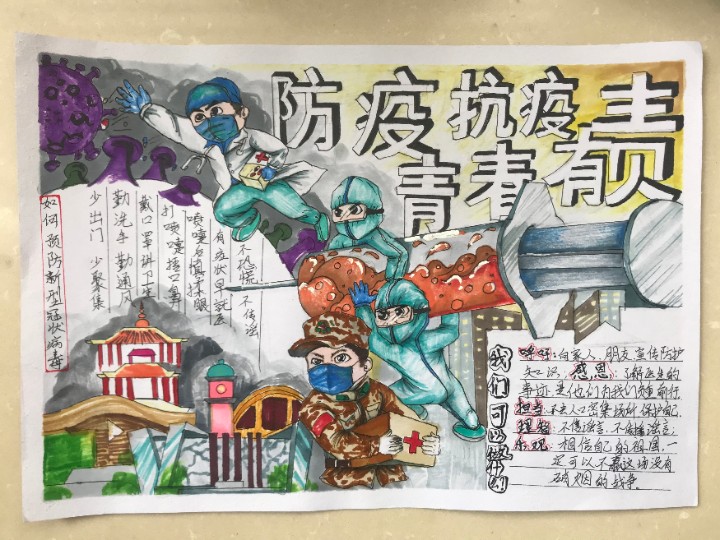 防疫抗疫
青春有责
如何预防新型冠状病毒
少出门 少聚集
勤洗手 勤通风
戴口罩讲卫生
打喷嚏捂口鼻
喷嚏后慎揉眼
有症状早就医
不恐慌 不传谣
我们可以
呼吁:向家人、朋友宣传防护
知识;感恩:了解医生的
事迹,是他们为我们负重前行
担当:不去人口密集场所,保护自己.
理智:不信谣言、不传播谣言;
乐观:相信自己的祖国,一
定可以 赢这场没有
硝烟的战争.